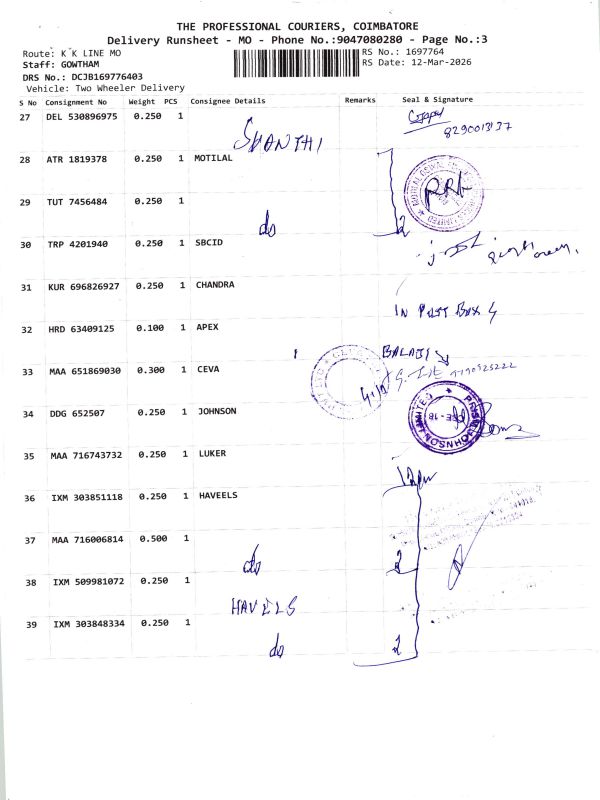 THE PROFESSIONAL COURIERS, COIMBATORE
Delivery Runsheet - MO - Phone No.:9047080280 - Page No.:3
Route: K K LINE MO
RS No.: 1697764
Staff: GOWTHAM
RS Date: 12-Mar-2026
DRS No.: DCJB169776403
Vehicle: Two Wheeler Delivery
S No Consignment No Weight PCS Consignee Details Remarks Seal & Signature
27 DEL 530896975 0.250 1
8290013137
SHANTHI
28 ATR 1819378 0.250 1 MOTILAL
29 TUT 7456484 0.250 1
do 2
30 TRP 4201940 0.250 1 SBCID
31 KUR 696826927 0.250 1 CHANDRA
IN POST BOX 4
32 HRD 63409125 0.100 1 APEX
BALAJI
33 MAA 651869030 0.300 1 CEVA
9790925222
34 DDG 652507 0.250 1 JOHNSON
35 MAA 716743732 0.250 1 LUKER
36 IXM 303851118 0.250 1 HAVEELS
37 MAA 716006814 0.500 1
do 2
38 IXM 509981072 0.250 1
HAVELS
39 IXM 303848334 0.250 1
do 2